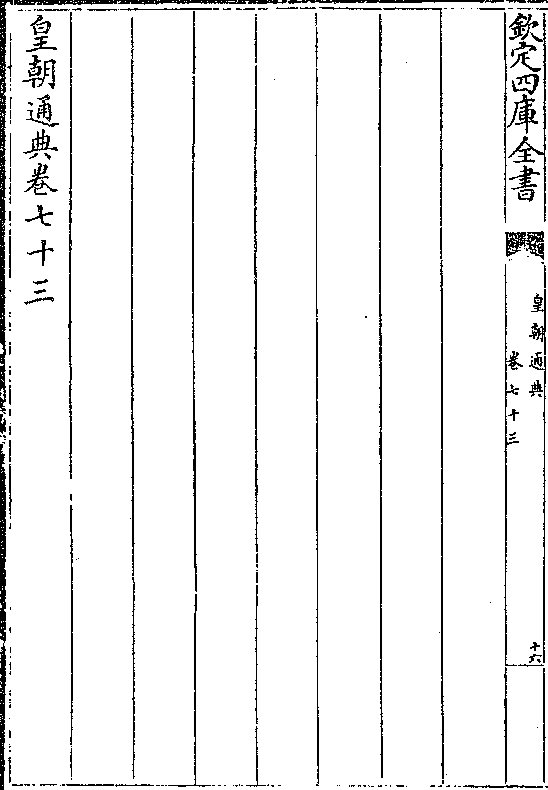 欽定四庫全書
皇朝通典
卷七十三
十六
皇朝通典卷七十三